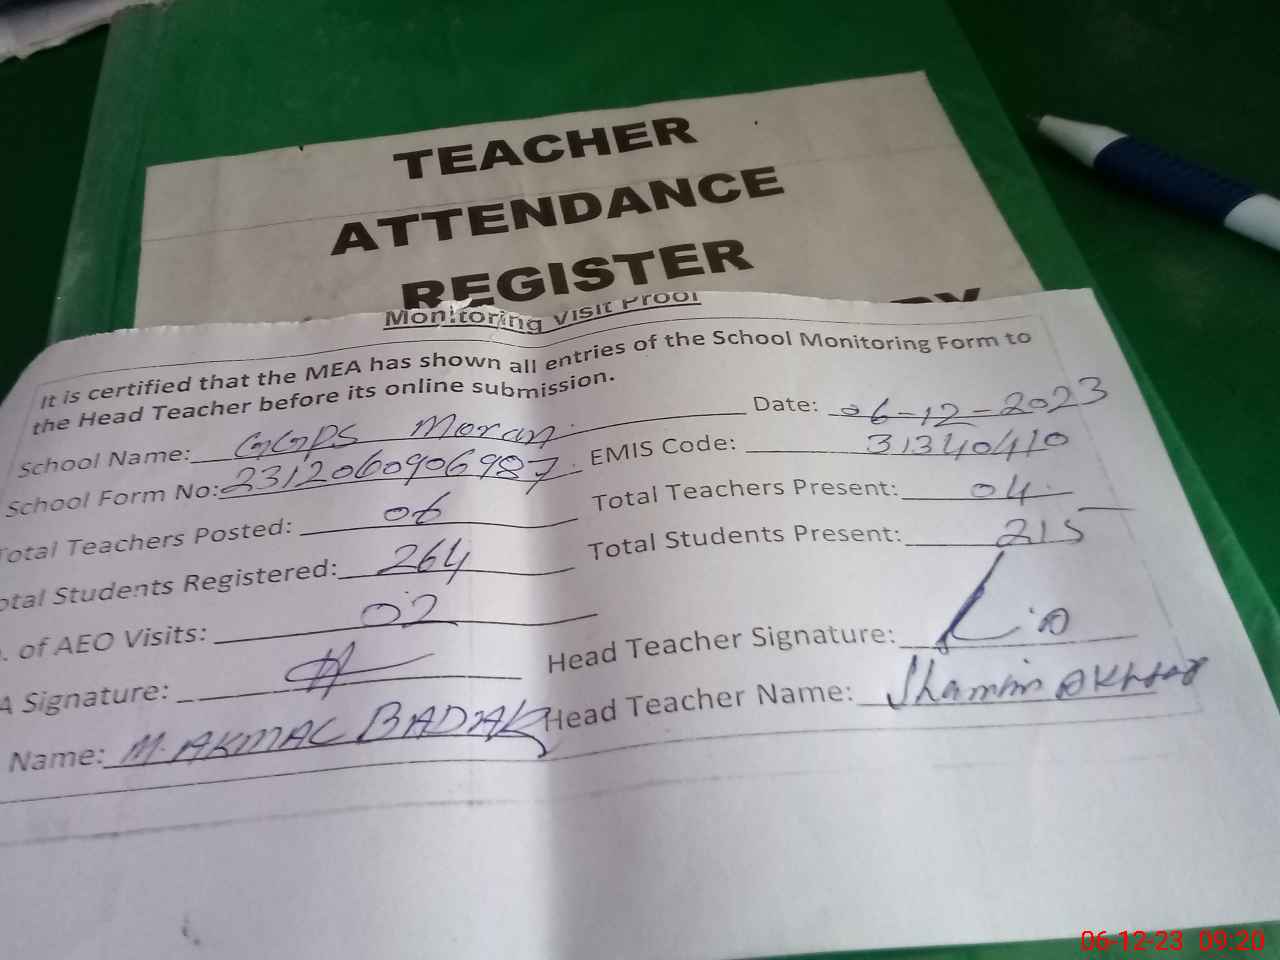 TEACHER
ATTENDANCE
REGISTER
Monitoring Visit Proof
It is certified that the MEA has shown all entries of the School Monitoring Form to
the Head Teacher before its online submission.
School Name: GGPS Moran. Date: 06-12-2023
School Form No: 2312060906987. EMIS Code: 31340410
Total Teachers Posted: 06 Total Teachers Present: 04
otal Students Registered: 264 Total Students Present: 215
. of AEO Visits: 02
A Signature: Head Teacher Signature:
Name: M. AKMAL Head Teacher Name: Shamim Akhtar
06-12-23 09:20